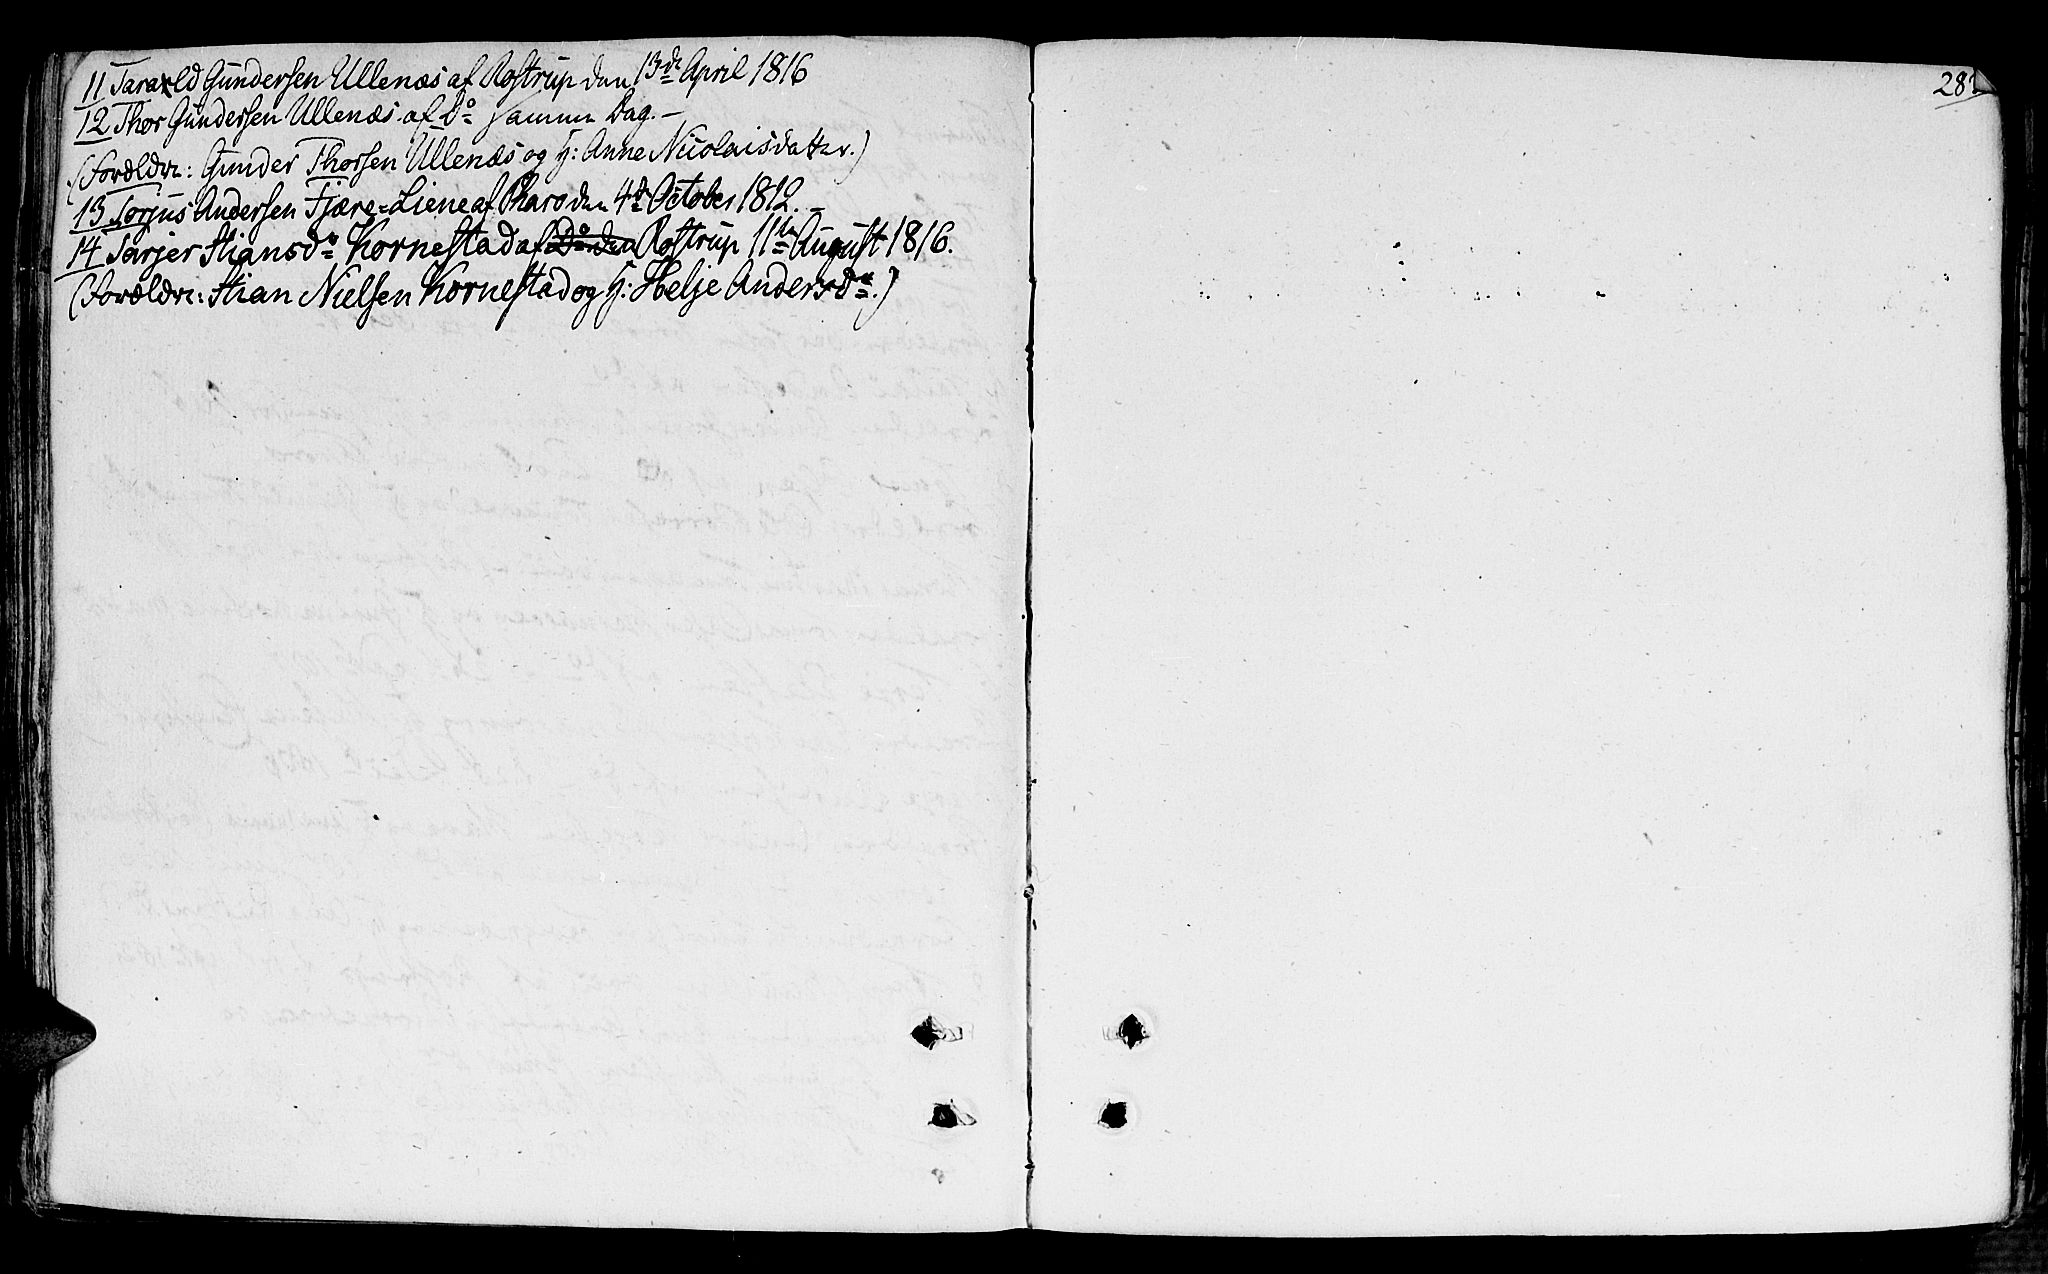 11 Tarald Gundersen Ullenæs af Rostrup den 13de April 1816
12 Thor Gundersen Ullenæs af Do samme Dag. –
(Forældre: Gunder Thorsen Ullenæs og H: Anne Nicolaisdatter.)
13 Lorjus Andersen Fjære=Liene af Baro den 4de October 1812. –
14 Tarjer Stiansdr Kornestad af Rostrup 11te August 1816.
(Forældre: Stian Nielsen Kornestad og H: Helje Andersdr.)
281